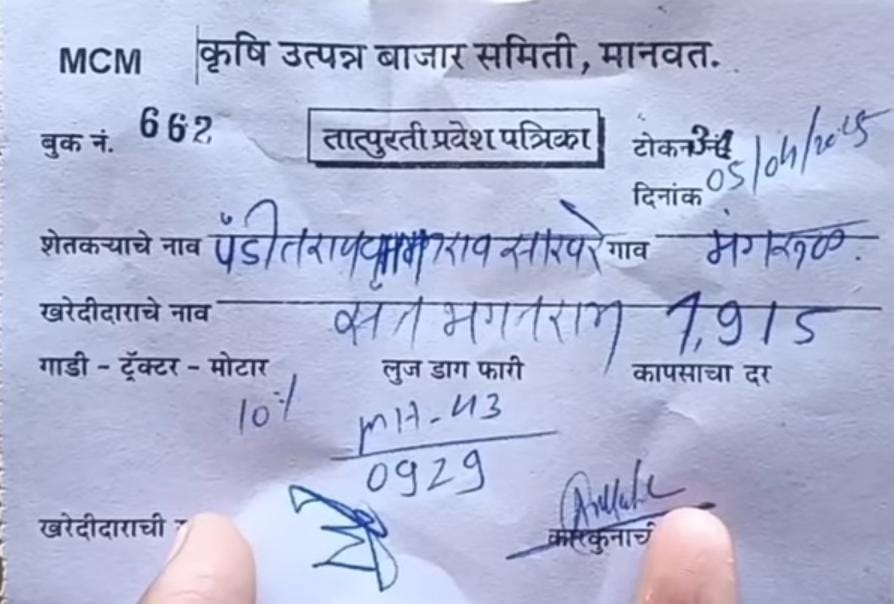 MCM कृषि उत्पन्न बाजार समिती, मानवत.
बुक नं. 662 तात्पुरती प्रवेश पत्रिका टोकन
दिनांक 05/04/2025
शेतकऱ्याचे नाव पंडीतराव सारपरे गाव
खरेदीदाराचे नाव संत भगतराम 7,915
गाडी - ट्रॅक्टर - मोटार लुज डाग फारी कापसाचा दर
10% MH-43
0929
खरेदीदाराची कारकुनाची